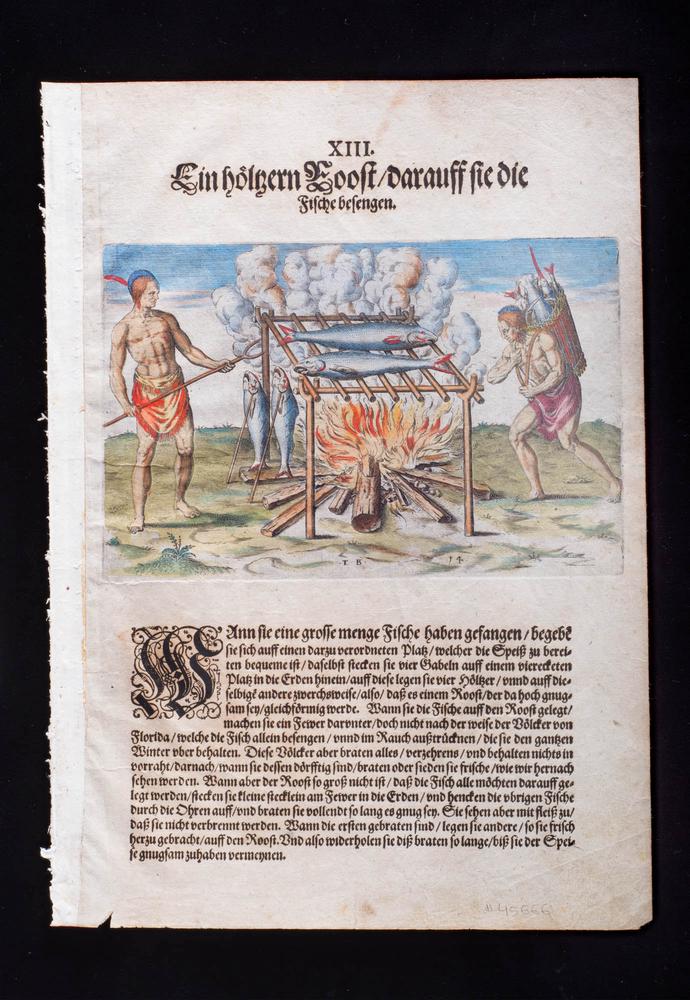 XIII.
Ein höltzern Roost/darauff sie die
Fische besengen.
T B
14
WAnn sie eine grosse menge Fische haben gefangen/begebẽ
sie sich auff einen darzu verordneten Platz/welcher die Speiß zu berei-
ten bequeme ist/daselbst stecken sie vier Gabeln auff einem viereckten
Platz in die Erden hinein/auff diese legen sie vier Höltzer/vnnd auff die-
selbige andere zwerchsweise/also/daß es einem Roost/der da hoch gnug-
sam sey/gleichförmig werde. Wann sie die Fische auff den Roost gelegt/
machen sie ein Fewer darvnter/doch nicht nach der weise der Völcker von
Florida/welche die Fisch allein besengen/vnnd im Rauch außtrücknen/die sie den gantzen
Winter vber behalten. Diese Völcker aber braten alles/verzehrens/vnd behalten nichts in
vorraht/darnach/wann sie dessen dörfftig sind/braten oder sieden sie frische/wie wir hernach
sehen werden. Wann aber der Roost so groß nicht ist/daß die Fisch alle möchten darauff ge-
legt werden/stecken sie kleine stecklein am Fewer in die Erden/vnd hencken die vbrigen Fische
durch die Ohren auff/vnd braten sie vollendt so lang es gnug sey. Sie sehen aber mit fleiß zu/
daß sie nicht verbrennt werden. Wann die ersten gebraten sind/legen sie andere/so sie frisch
herzu gebracht/auff den Roost. Vnd also widerholen sie diß braten so lange/biß sie der Spei-
se gnugsam zuhaben vermeynen.
#45666